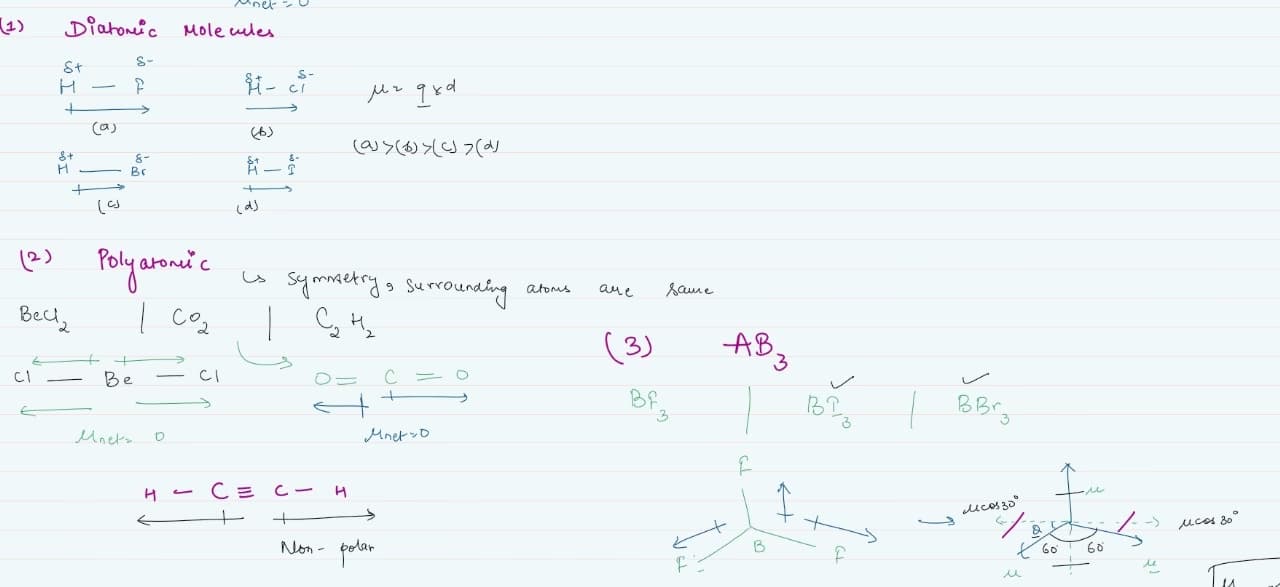 μnet = 0
(1) Diatomic Molecules
δ+ δ-
H — F
(a)
δ+ δ-
H - Cl
(b)
μ = q x d
(a) > (b) > (c) > (d)
δ+ δ-
H — Br
(c)
δ+ δ-
H — I
(d)
(2) Polyatomic
↳ symmetry, surrounding atoms are same
BeCl2 | CO2 | C2H2
Cl — Be — Cl
μnet = 0
O = C = O
μnet = 0
H - C ≡ C - H
Non-polar
(3) AB3
BF3 | BI3 ✓ | BBr3 ✓
F
B
F F
μ
μcos30° μcos30°
60 60
μ μ